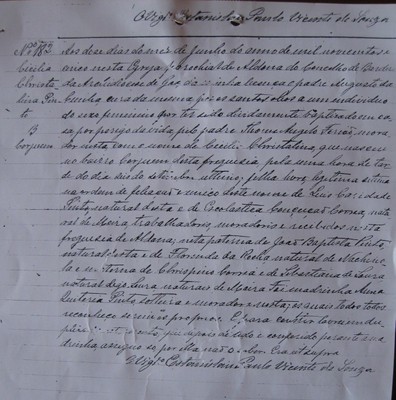 O Vigº Estanislau Paulo Vicente de Souza
Nº 113
Cecilia
Christa
lina Pin
to
B
Corpuem
Aos dez dias do mez de Junho do anno de mil novecentos e
annos nesta Egreja Parochial de Aldona do Concelho de Bardez
da Archidiocese de Goa, de minha licença o padre Augusto da
Cunha cura da mesma poz os santos olhos a um individuo
do sexo feminino por ter sido devidamente baptisado em ca
sa por perigo da vida pelo padre Thomé Angelo Ferrão, mora
dor nesta com o nome de Cecilia Christalina, que nasceu
no bairro Corpuem desta freguesia pela uma hora da tar
de do dia do ultimo, filha
na ordem de filiação e unica deste nome de Luis Caridade
Pinto, natural desta e de Escolastica Conceição Correa, natu
ral de Moira, trabalhadores, moradores e recebidos nesta
freguesia de Aldona, neta paterna de José Baptista Pinto
natural desta e de Florinda da Rocha natural de
e materna de Chrispim Correa e de Sebastiana de Souza
natural digo, naturaes de Moira foi madrinha Anna
Quiteria Pinto solteira e moradora nesta; os quaes todos
reconheço serem os proprios. E para constar lavrei em du
plicado o assento, que depois de lido e conferido perante a ma
drinha, assigno eu por ella não o saber. Era ut supra
O Vigº Estanislau Paulo Vicente de Souza